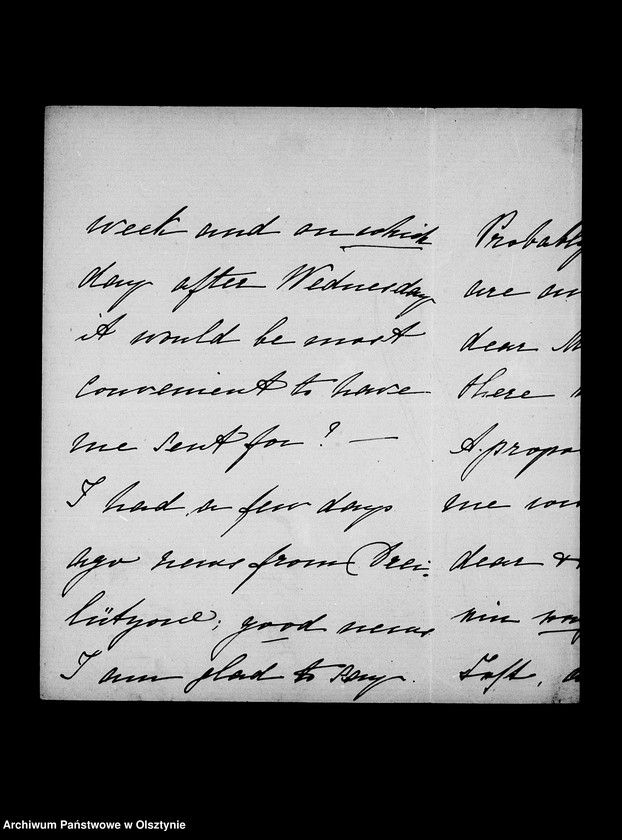 week and on which
day after Wednesday
it would be most
convenient to have
me sent for? —
I had a few days
ago news from
good news
I am glad to say.
Probably
are
dear
there
A propo
me
dear
Archiwum Państwowe w Olsztynie